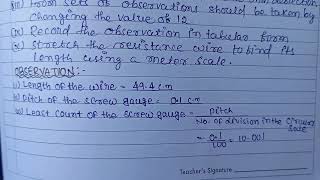 (viii) From sets of observations should be taken by
changing the value of 12
(ix) Record the observation in tabular form
(x) Stretch the resistance wire to bind its
length using a meter scale.
OBSERVATION:-
i) Length of the wire = 49.4 cm
ii) Pitch of the screw gauge = 0.1 cm
iii) Least Count of the screw gauge = Pitch
No. of division in the Circular
Scale
= 0.1/100 = 10.001
Teacher's Signature